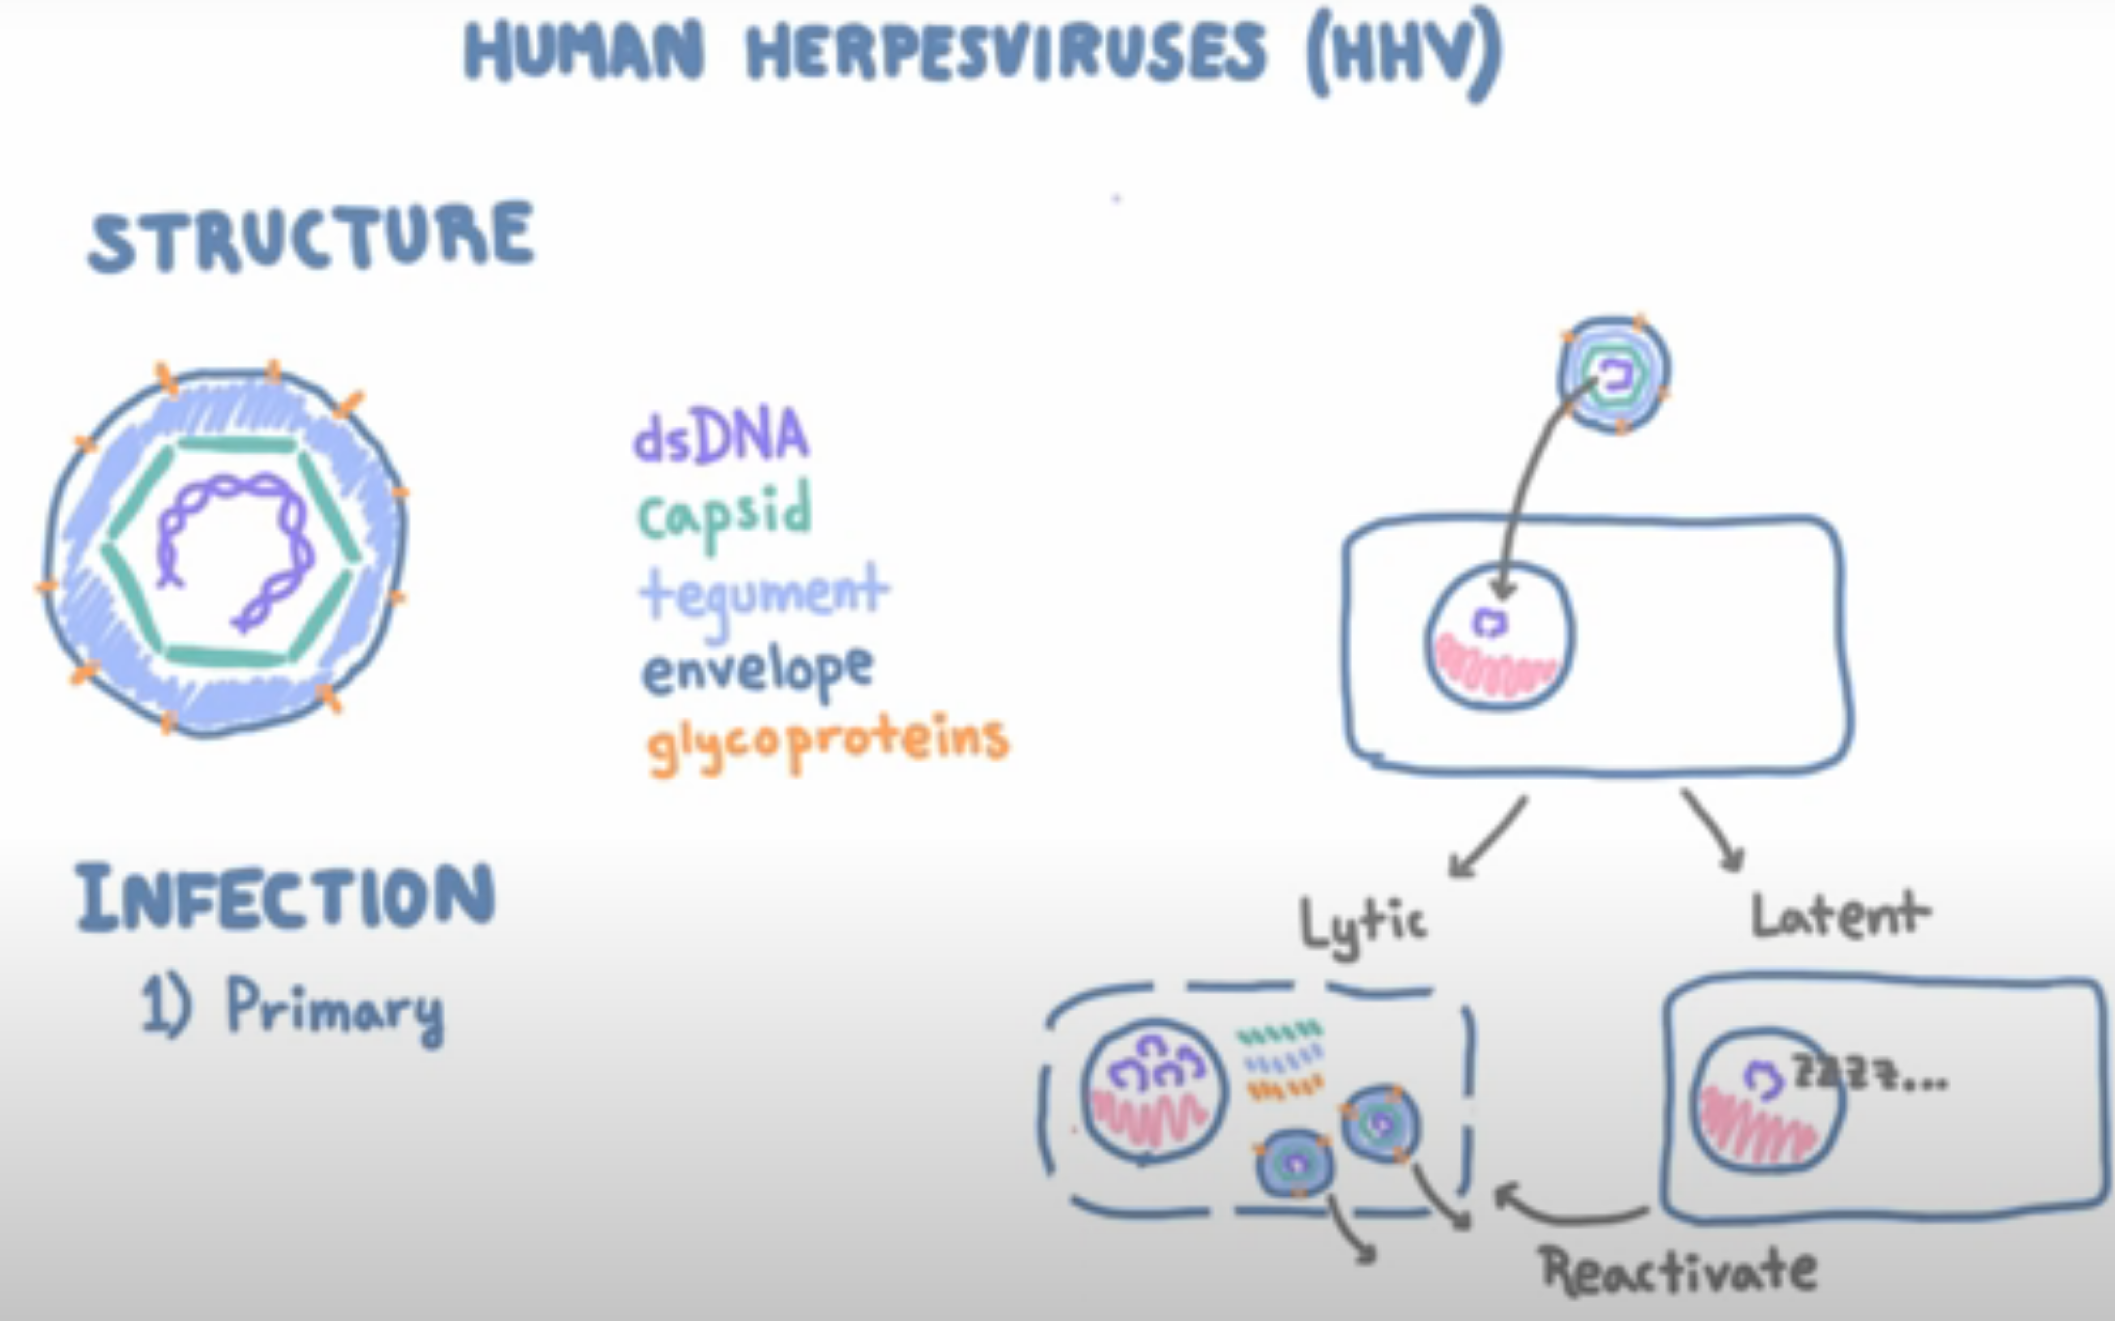 HUMAN HERPESVIRUSES (HHV)
STRUCTURE
dsDNA
capsid
tegument
envelope
glycoproteins
INFECTION
1) Primary
Lytic
Latent
zzzz...
Reactivate